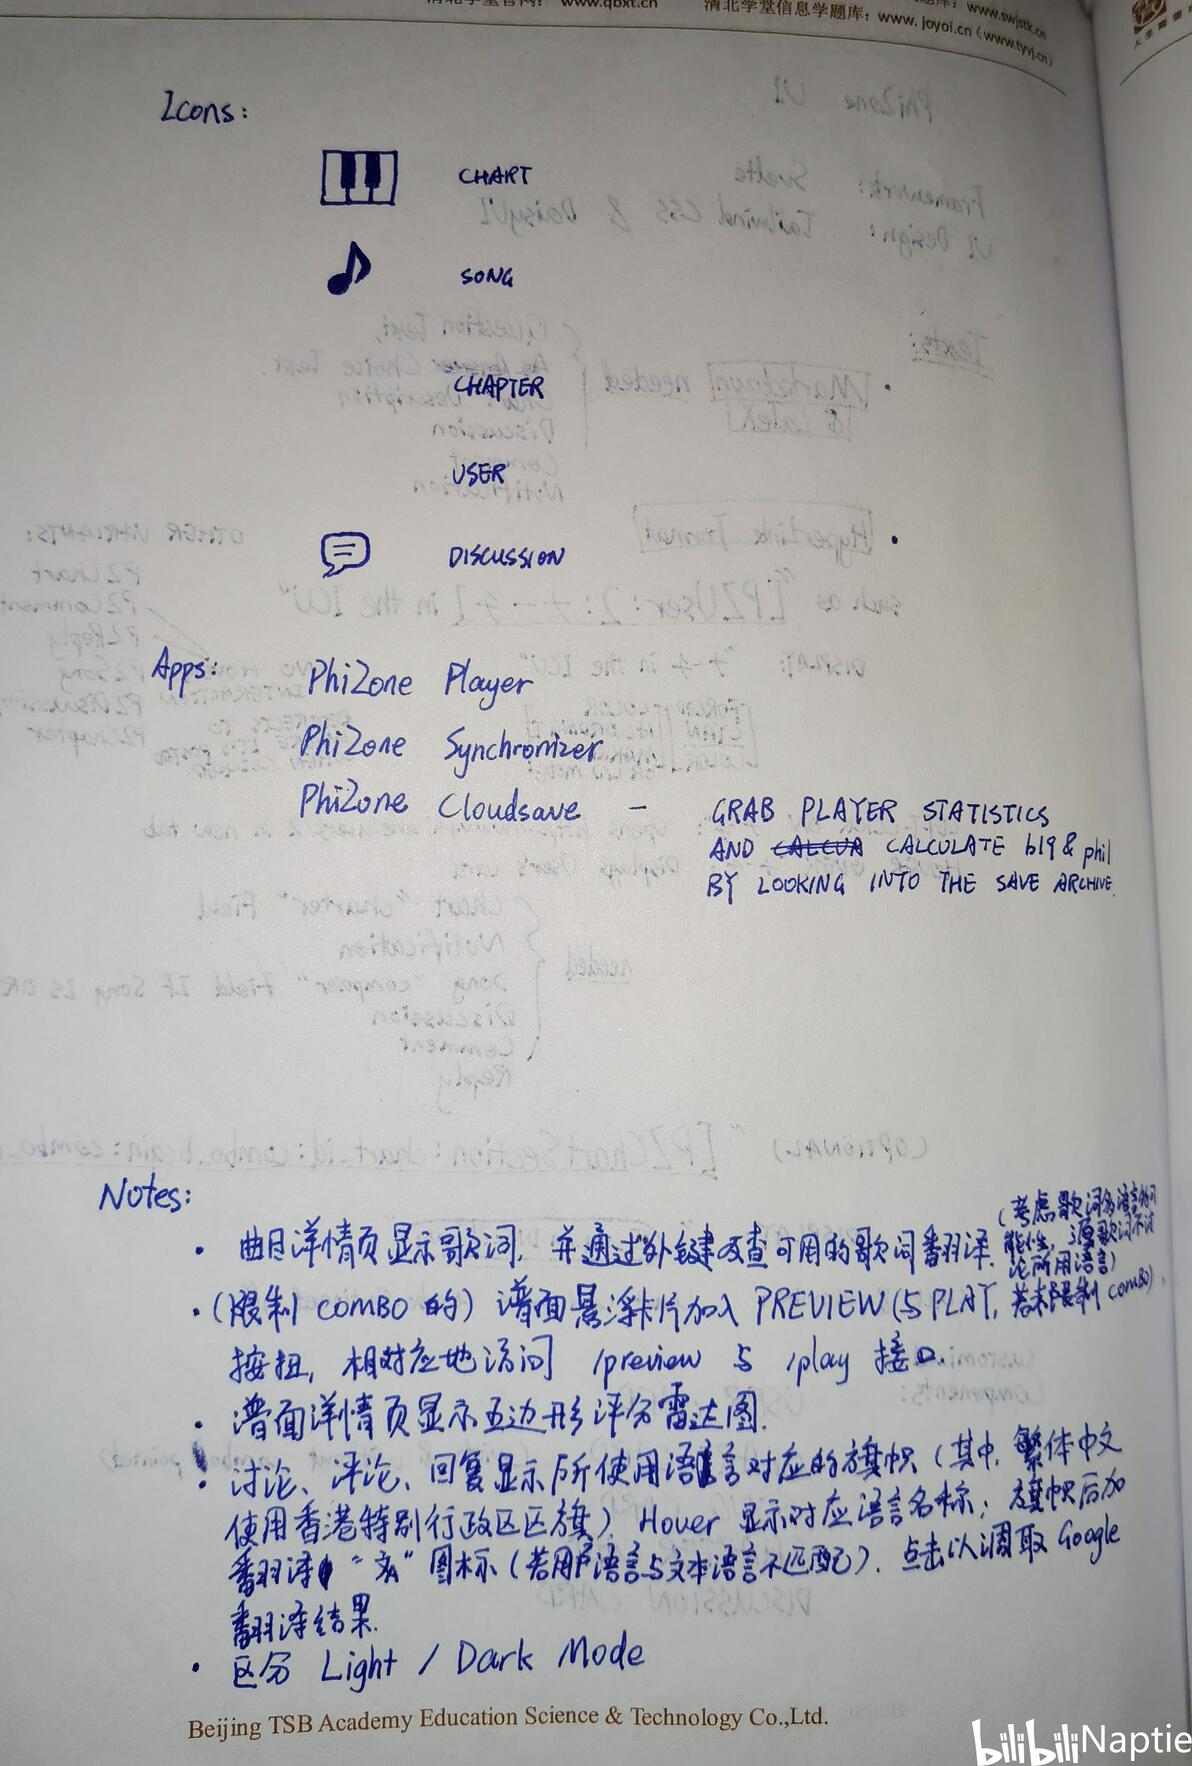 www.qbxt.cn
清北学堂信息学题库：www.joyoi.cn（www.tyvj.cn）
www.swjstk.cn
Icons:
CHART
SONG
CHAPTER
USER
DISCUSSION
Apps: PhiZone Player
PhiZone Synchronizer
PhiZone Cloudsave – GRAB PLAYER STATISTICS
AND CALCUA CALCULATE b19 & phi1
BY LOOKING INTO THE SAVE ARCHIVE.
Notes:
• 曲目详情页显示歌词，并通过外键反查可用的歌词翻译.（考虑歌词多语言的可
能性，源歌词不讨
论所用语言）
•（限制 COMBO 的）谱面悬浮卡片加入 PREVIEW（与 PLAY，若未限制 combo）
按扭，相对应地访问 /preview 与 /play 接口.
• 谱面详情页显示五边形评分雷达图.
• 讨论、评论、回复显示所使用语言对应的旗帜（其中，繁体中文
使用香港特别行政区区旗）. Hover 显示对应语言名称；旗帜后加
翻译 " " 图标（若用户语言与文本语言不匹配）. 点击以调取 Google
翻译结果.
• 区分 Light / Dark Mode
Beijing TSB Academy Education Science & Technology Co.,Ltd.
bilibili Naptie